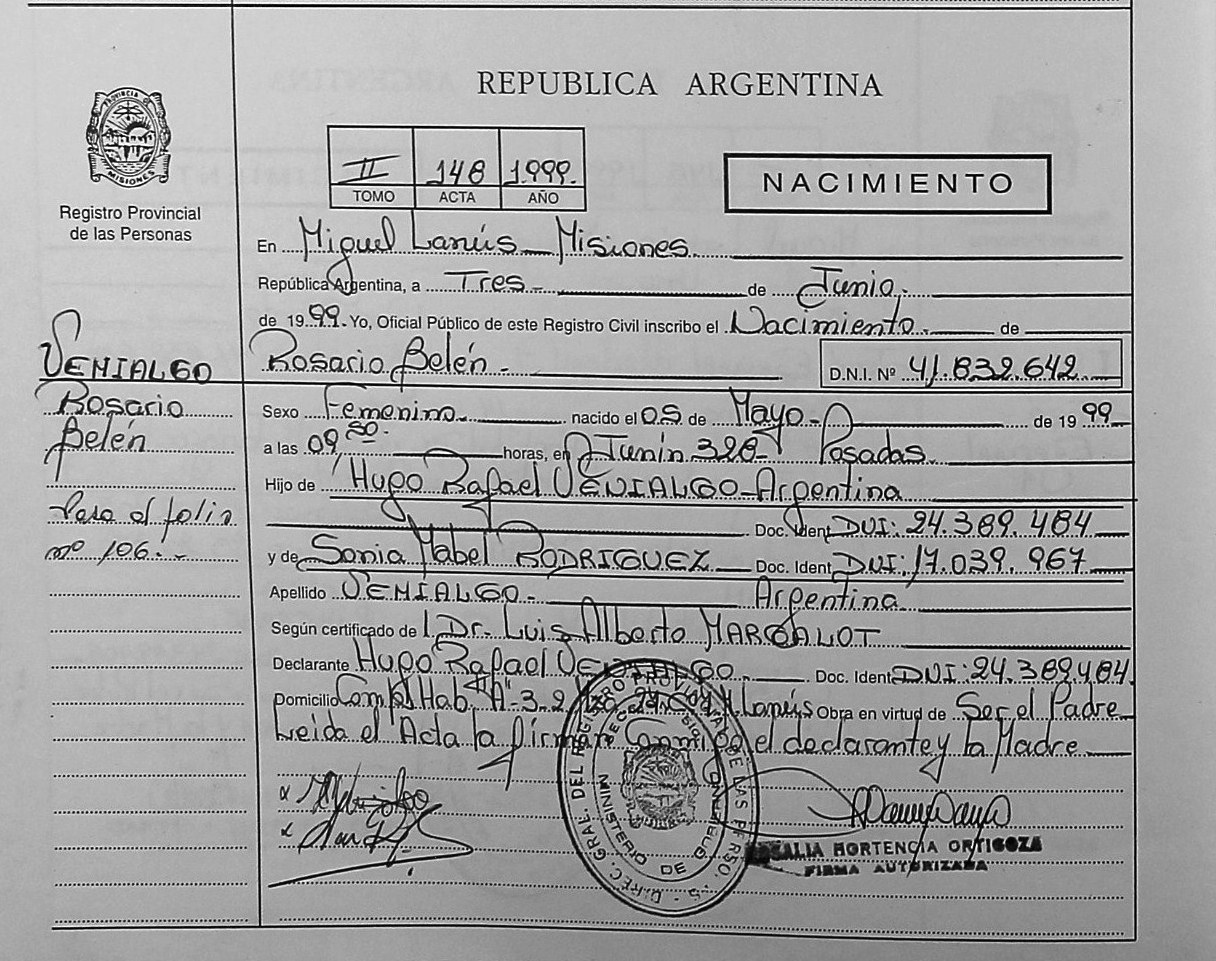 REPUBLICA ARGENTINA
PROVINCIA DE
MISIONES
Registro Provincial
de las Personas
II 148 1.999.
TOMO ACTA AÑO
NACIMIENTO
En Miguel Lanús - Misiones
República Argentina, a Tres - de Junio,
de 19 99. Yo, Oficial Público de este Registro Civil inscribo el Nacimiento. de
Rosario Belén - D.N.I. Nº 41.832.642
Sexo Femenino nacido el 05 de Mayo - de 19 99
a las 09, horas, en Junín 328 - Posadas
Hijo de Hugo Rafael VENIALGO - Argentina
Doc. Ident DNI: 24.389.484
y de Sonia Mabel RODRIGUEZ Doc. Ident DNI: 17.039.967
Apellido VENIALGO - Argentina
Según certificado de Dr. Luis Alberto MARGALOT
Declarante Hugo Rafael VENIALGO Doc. Ident DNI: 24.389.484
Domicilio Hab. "A" Lanús Obra en virtud de Ser el Padre
Leida el Acta la firman Conmigo el declarante y la Madre
VENIALGO
Rosario
Belén
Pasa al folio
nº 106. -
DIREC. GRAL. DEL REGISTRO PROVINCIAL DE LAS PERSO.
MINISTERIO DE
ROSALIA HORTENCIA ORTIGOZA
FIRMA AUTORIZADA